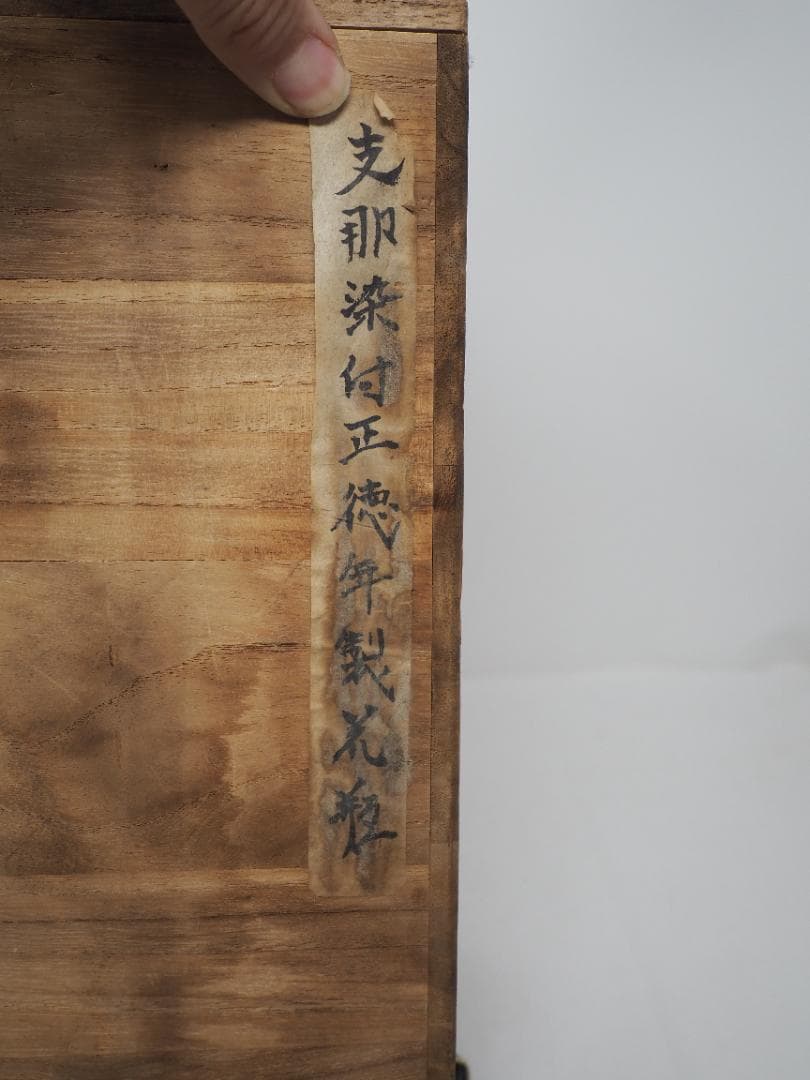 支那染付正徳年製花瓶